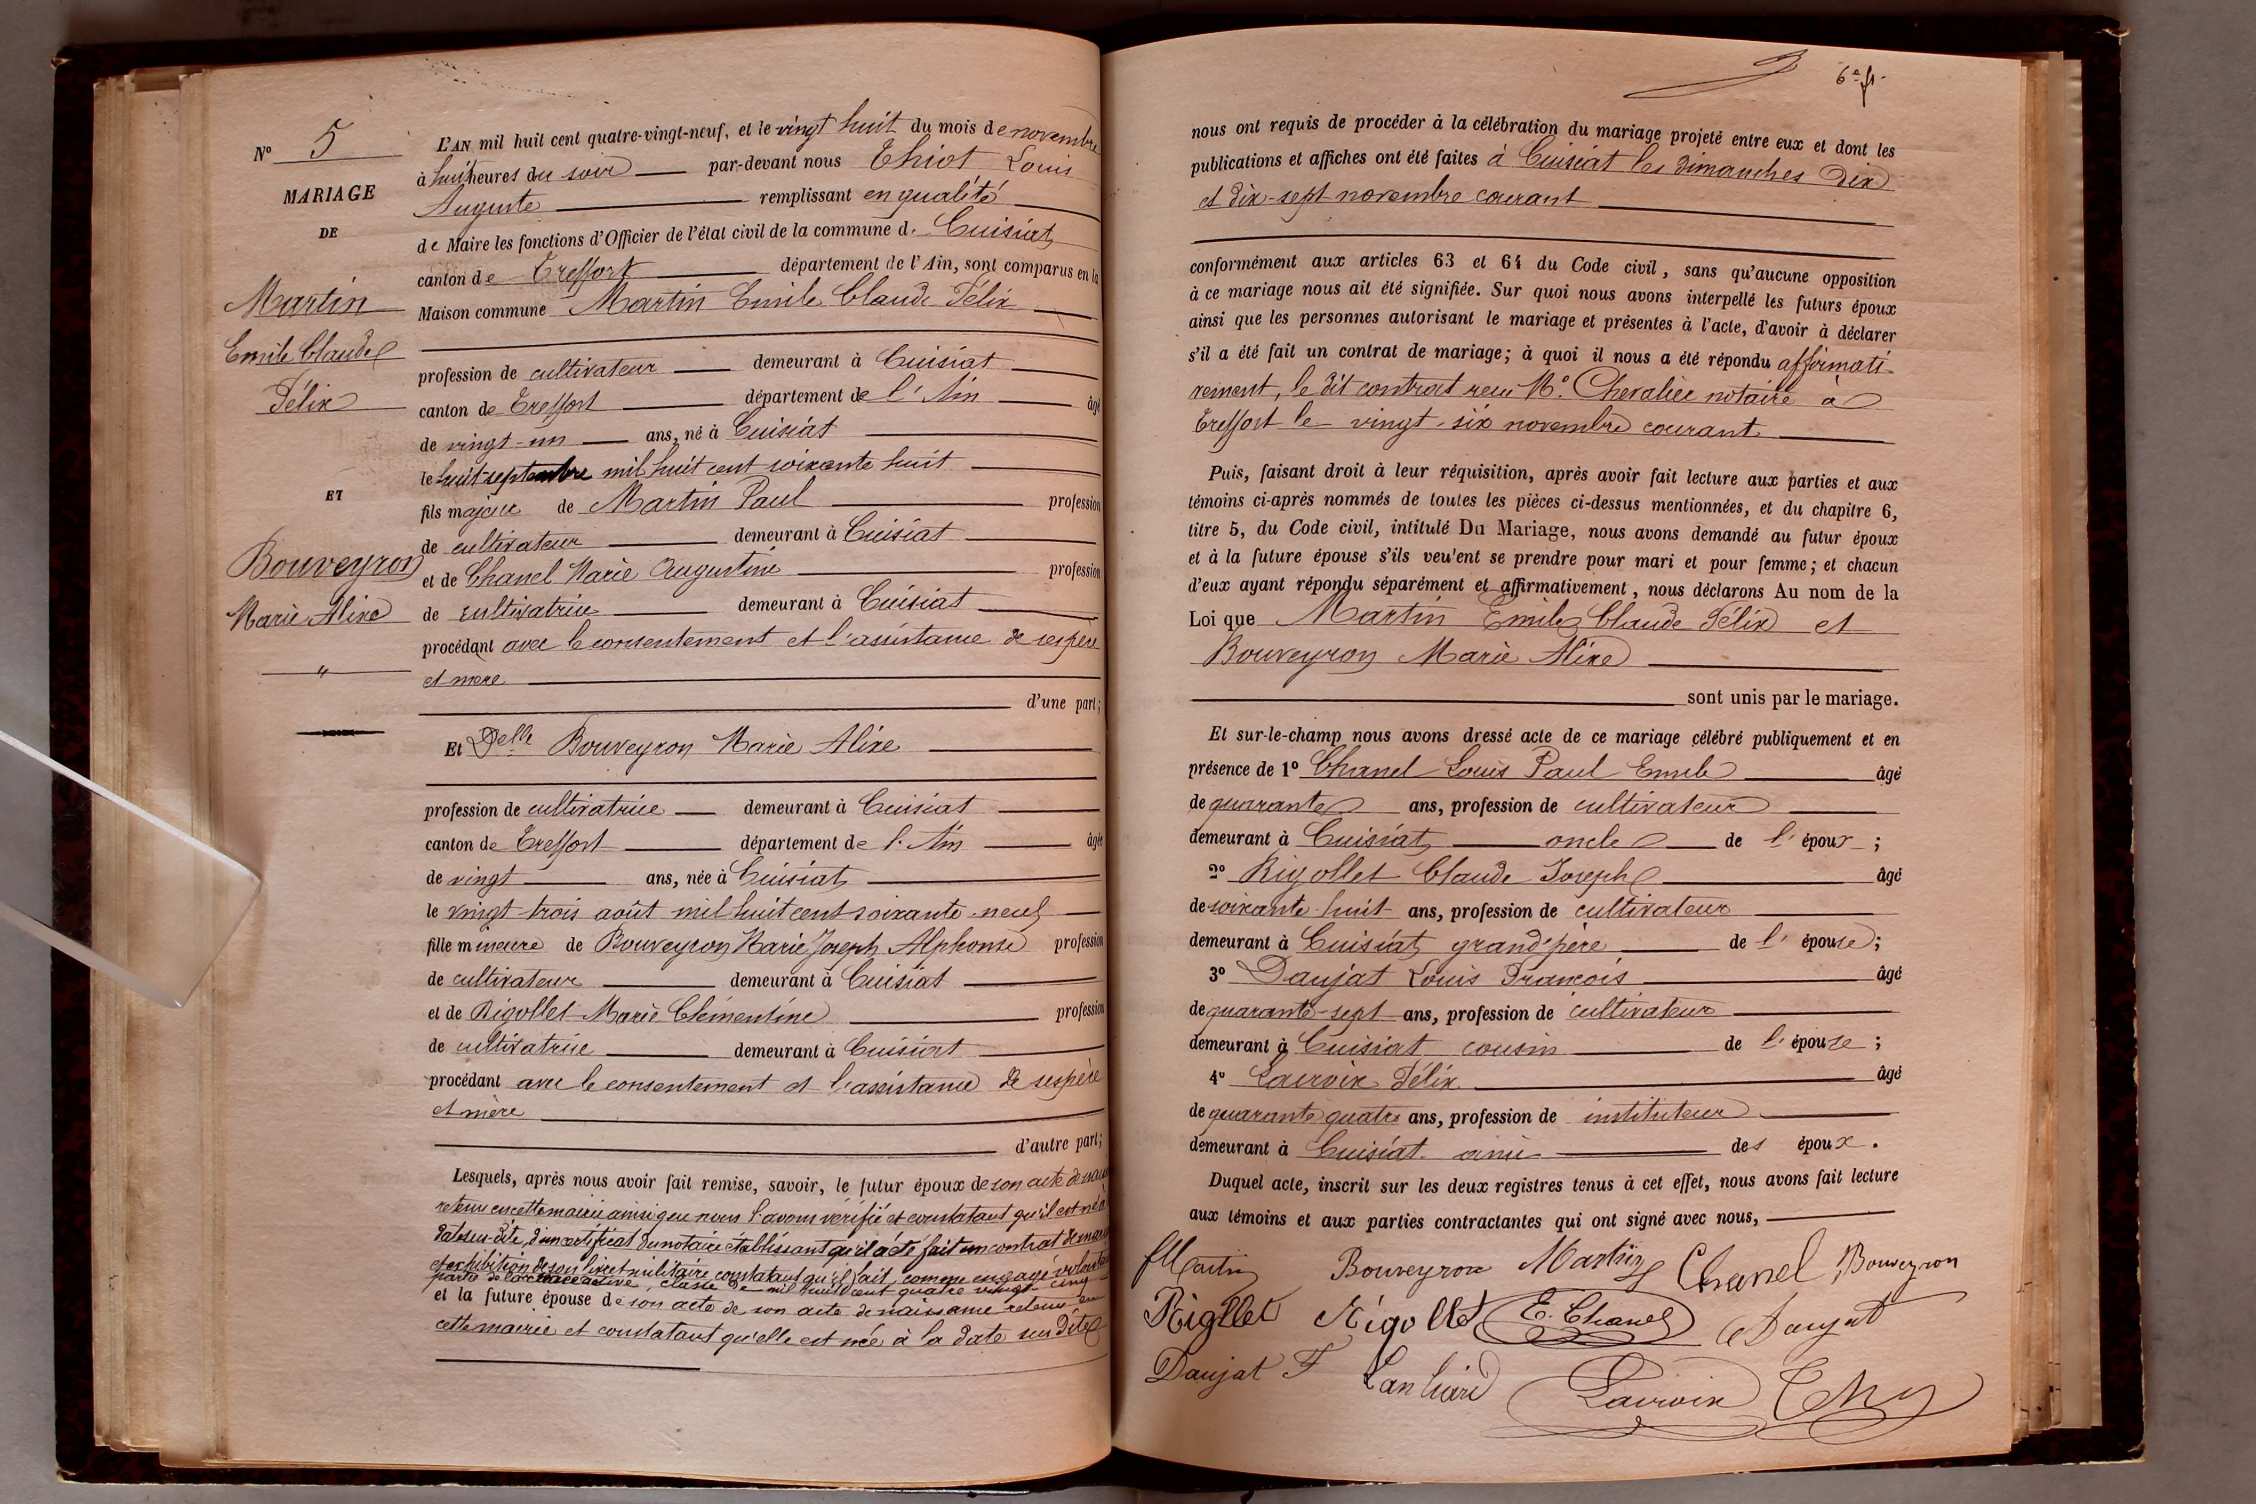 N° 5
MARIAGE
DE
Martin
Emile Claude
Félix
ET
Bouveyron
Marie Alixe
"
L'AN mil huit cent quatre-vingt-neuf, et le vingt huit du mois de novembre
à huit heures du soir par-devant nous Thiot Louis
Auguste remplissant en qualité
de Maire les fonctions d'Officier de l'état civil de la commune d. Cuisiat
canton de Treffort département de l'Ain, sont comparus en la
Maison commune Martin Emile Claude Félix
profession de cultivateur demeurant à Cuisiat
canton de Treffort département de l'Ain âgé
de vingt-un ans, né à Cuisiat
le huit septembre mil huit cent soixante huit
fils majeur de Martin Paul profession
de cultivateur demeurant à Cuisiat
et de Chanel Marie Augustine profession
de cultivatrice demeurant à Cuisiat
procédant avec le consentement et l'assistance de ses père
et mère
d'une part;
Et Delle Bouveyron Marie Alixe
profession de cultivatrice demeurant à Cuisiat
canton de Treffort département de l'Ain âgée
de vingt ans, née à Cuisiat
le vingt trois août mil huit cent soixante-neuf
fille mineure de Bouveyron Marie Joseph Alphonse profession
de cultivateur demeurant à Cuisiat
et de Rigollet Marie Clémentine profession
de cultivatrice demeurant à Cuisiat
procédant avec le consentement et l'assistance de ses père
et mère
d'autre part;
Lesquels, après nous avoir fait remise, savoir, le futur époux de son acte de
retenu en cette mairie ainsi que nous l'avons vérifié et constatant qu'il est né à
date sus-dite, d'un certificat du notaire établissant qu'il a été fait un contrat de
et exhibition de son livret militaire constatant qu'il fait, comme engagé
partie de l'armée active, classe de mil huit cent quatre vingt-cinq
et la future épouse de son acte de son acte de naissance retenu en
cette mairie et constatant qu'elle est née à la date sus dite
6e ft.
nous ont requis de procéder à la célébration du mariage projeté entre eux et dont les
publications et affiches ont été faites à Cuisiat les dimanches dix
et dix-sept novembre courant
conformément aux articles 63 et 64 du Code civil, sans qu'aucune opposition
à ce mariage nous ait été signifiée. Sur quoi nous avons interpellé les futurs époux
ainsi que les personnes autorisant le mariage et présentes à l'acte, d'avoir à déclarer
s'il a été fait un contrat de mariage; à quoi il nous a été répondu affirmati-
vement, le dit contrat reçu Me. Chevalier notaire à
Treffort le vingt-six novembre courant
Puis, faisant droit à leur réquisition, après avoir fait lecture aux parties et aux
témoins ci-après nommés de toutes les pièces ci-dessus mentionnées, et du chapitre 6,
titre 5, du Code civil, intitulé Du Mariage, nous avons demandé au futur époux
et à la future épouse s'ils veu'ent se prendre pour mari et pour femme; et chacun
d'eux ayant répondu séparément et affirmativement, nous déclarons Au nom de la
Loi que Martin Emile Claude Félix et
Bouveyron Marie Alixe
sont unis par le mariage.
Et sur-le-champ nous avons dressé acte de ce mariage célébré publiquement et en
présence de 1° Chanel Louis Paul Emile âgé
de quarante ans, profession de cultivateur
demeurant à Cuisiat oncle de l'époux ;
2° Rigollet Claude Joseph âgé
de soixante-huit ans, profession de cultivateur
demeurant à Cuisiat grand'père de l'épouse ;
3° Daujat Louis François âgé
de quarante-sept ans, profession de cultivateur
demeurant à Cuisiat cousin de l'épouse ;
4° Lacroix Félix âgé
de quarante quatre ans, profession de instituteur
demeurant à Cuisiat ami des époux.
Duquel acte, inscrit sur les deux registres tenus à cet effet, nous avons fait lecture
aux témoins et aux parties contractantes qui ont signé avec nous,
Martin Bouveyron Martin Chanel Bouveyron
Rigllet Rigollet E. Chanel Daujat
Daujat F Lacroix